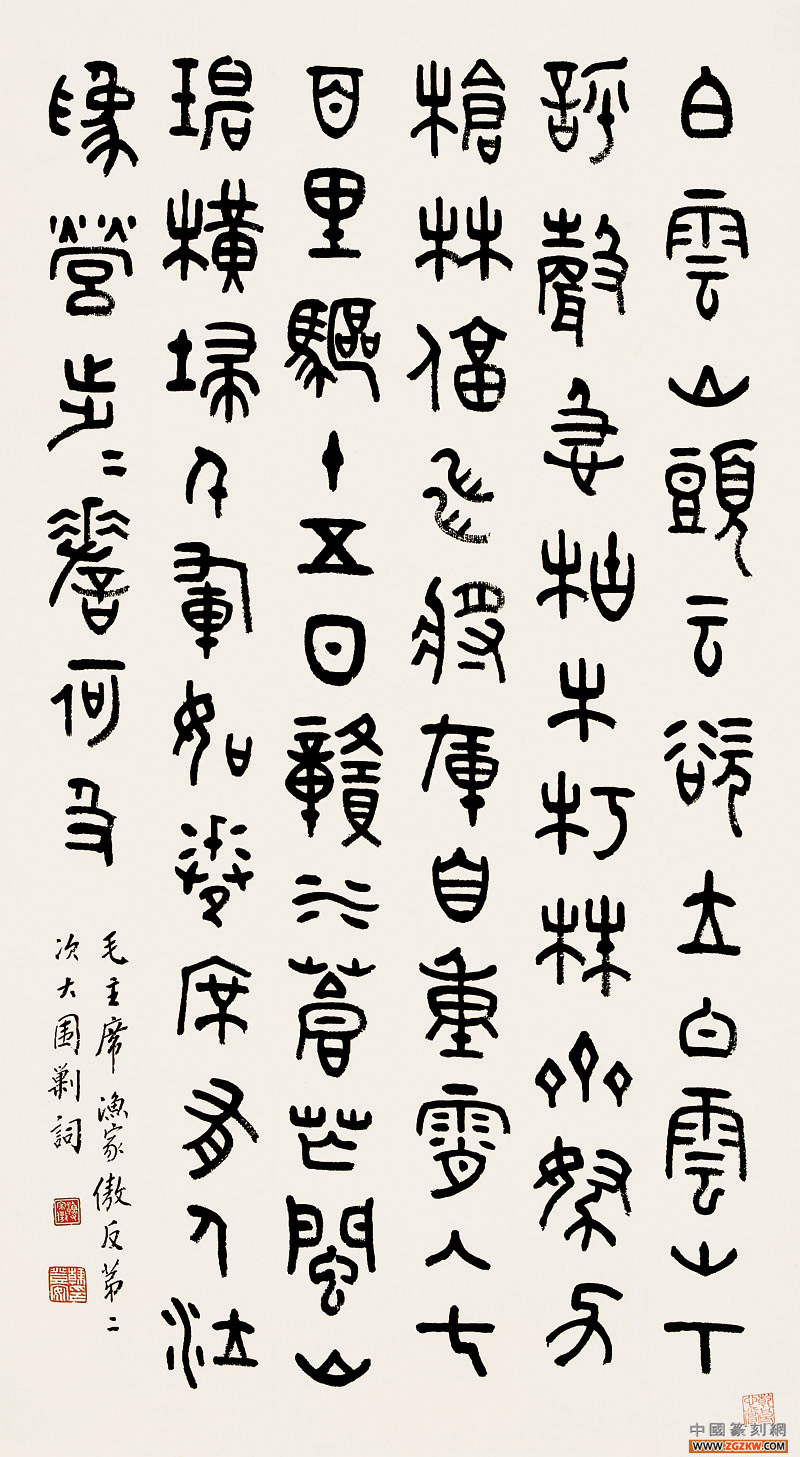 白雲山頭云欲立白雲山下
呼聲急枯木朽株齊努力
槍林偪飛將軍自重霄入七
百里驅十五日贛水蒼茫閩山
碧橫埽千軍如卷席有人泣
為營步〻嗟何及
毛主席漁家傲反第二
次大圍剿詞
中國篆刻網
WWW.ZGZKW.COM